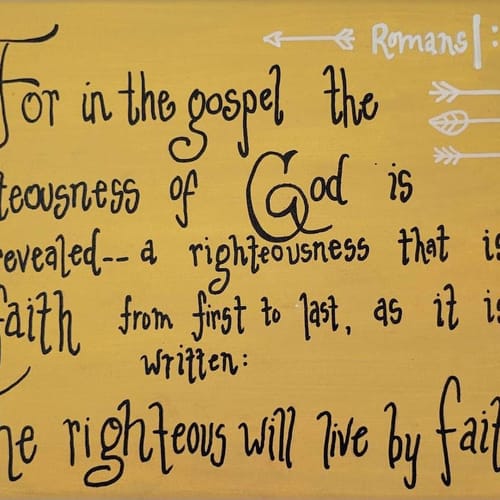 Romans 1:
For in the gospel the
teousness of God is
revealed--a righteousness that is
faith from first to last, as it is
written:
he righteous will live by fait